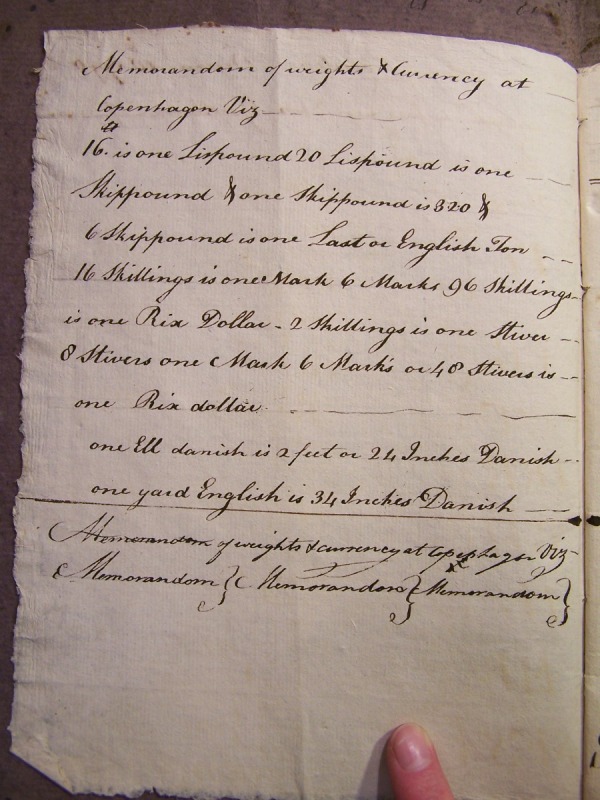 Memorandom of weights & Currency at
Copenhagon Viz
16 ℔. is one Lispound 20 Lispound is one
Skippound & one Skippound is 320 ℔
6 Skippound is one Last or English Ton
16 Skillings is one Mark 6 Marks 96 Skillings
is one Rix Dollar - 2 Skillings is one Stiver
8 Stivers one Mark 6 Mark's or 48 Stivers is
one Rix dollar
one Ell danish is 2 feet or 24 Inches Danish
one yard English is 34 Inches Danish
Memorandom of weights & currency at Copenhagon Viz
Memorandom } Memorandom } Memorandom }